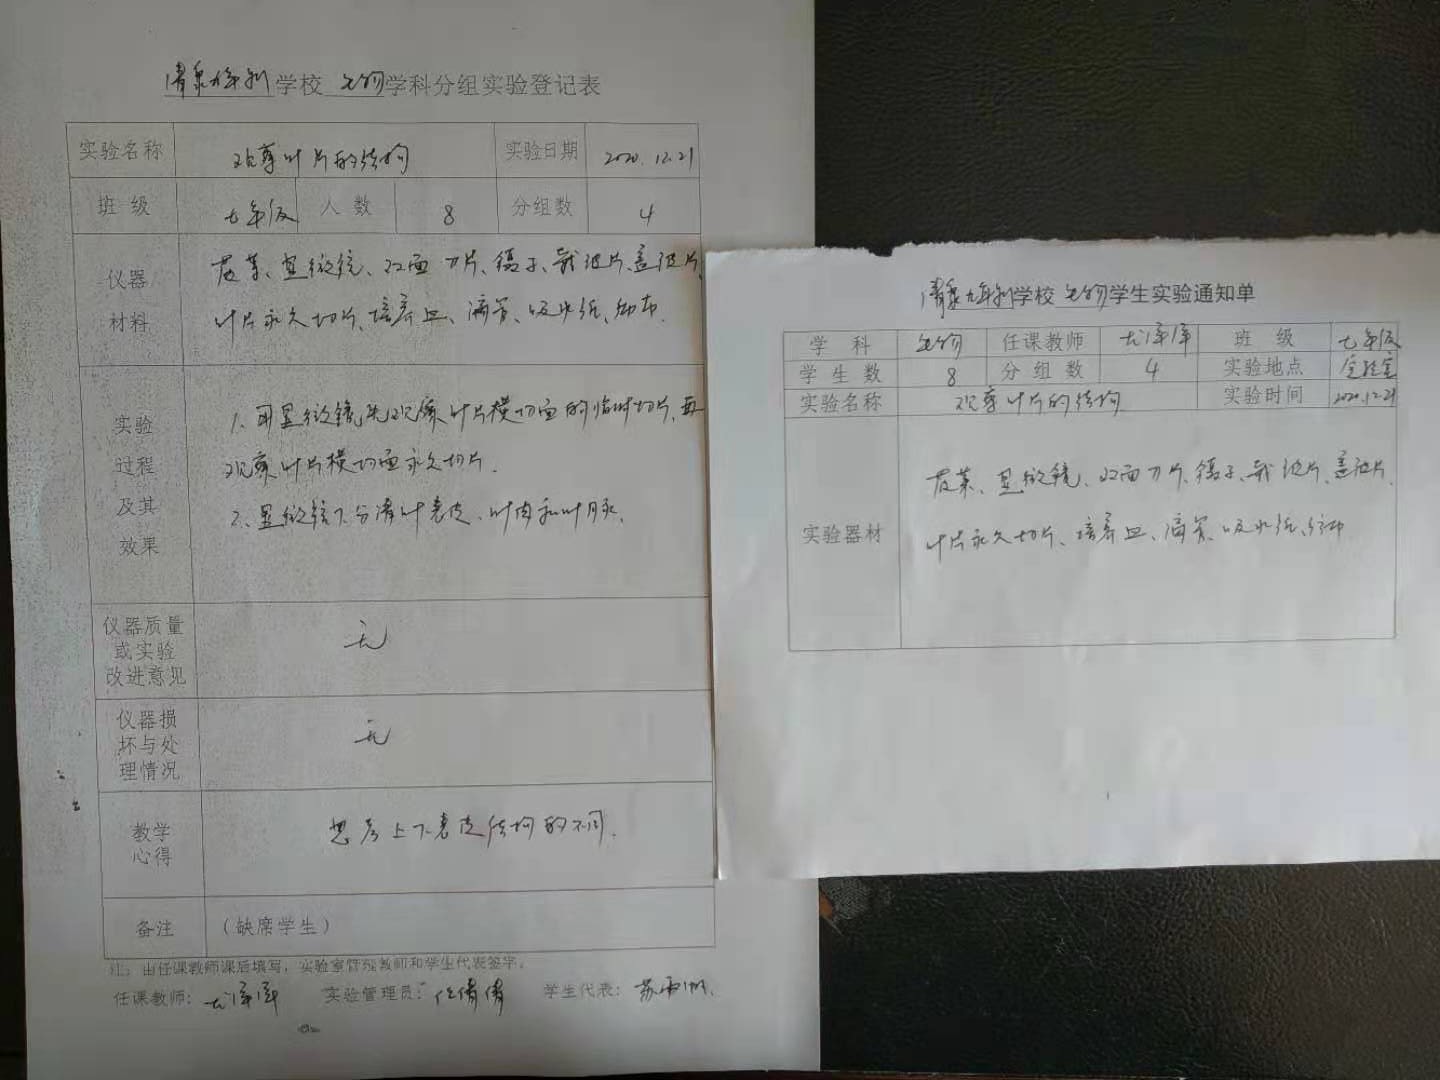 清泉九年制学校 生物学科分组实验登记表
实验名称 观察叶片的结构 实验日期 2020.12.21
班 级 七年级 人 数 8 分组数 4
仪器
材料
菠菜、显微镜、双面刀片、镊子、载玻片、盖玻片、
叶片永久切片、培养皿、滴管、吸水纸、纱布.
实验
过程
及其
效果
1. 用显微镜先观察叶片横切面的临时切片,再
观察叶片横切面永久切片.
2. 显微镜下分清叶表皮、叶肉和叶脉.
仪器质量
或实验
改进意见
无
仪器损
坏与处
理情况
无
教学
心得
思考上下表皮结构的不同.
备注 (缺席学生)
注:由任课教师课后填写,实验室管理教师和学生代表签字。
任课教师: 实验管理员:任倩倩 学生代表:
清泉九年制学校 生物学生实验通知单
学 科 生物 任课教师 班 级 七年级
学 生 数 8 分 组 数 4 实验地点 实验室
实验名称 观察叶片的结构 实验时间 2020.12.21
实验器材
菠菜、显微镜、双面刀片、镊子、载玻片、盖玻片
叶片永久切片、培养皿、滴管、吸水纸、纱布